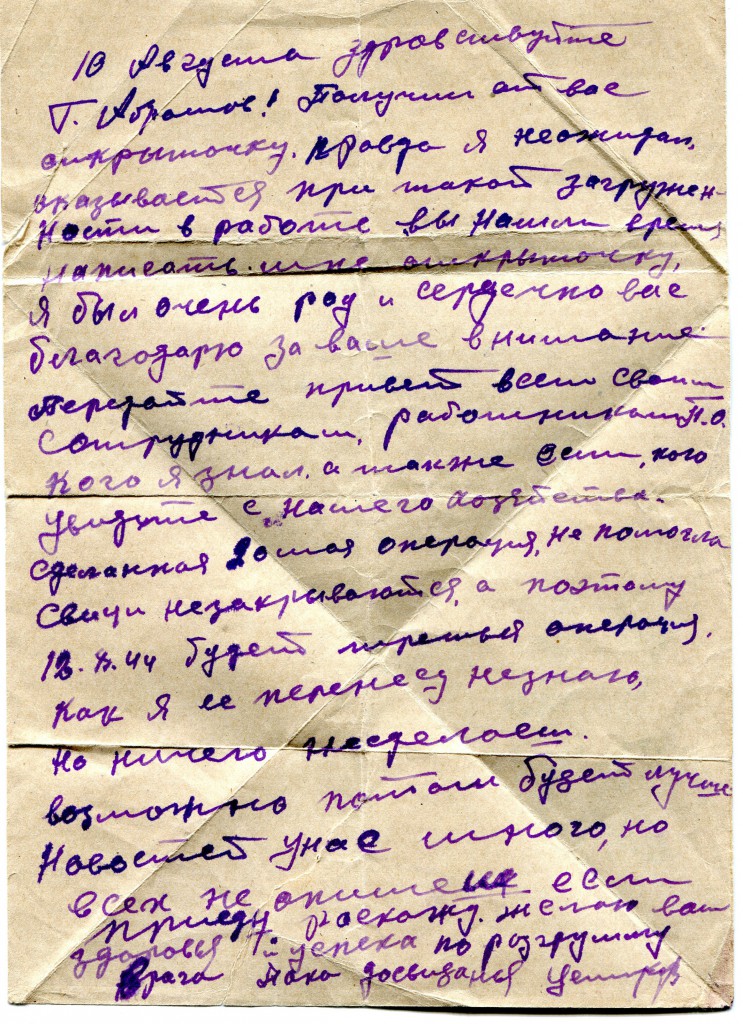 10 Августа здравствуйте
Т. Абрамов! Получил от вас
открыточку. правда я неожидал,
оказывается при такой загружен-
ности в работе вы нашли время
написать мне открыточку,
я был очень рад и сердечно вас
благодарю за ваше внимание
Передайте привет всем своим
сотрудникам, работникам П.О.
кого я знал, а также всем, кого
увидите с нашего хозяйства.
сделанная 2ая операция, не помогла
свищи незакрываются, а поэтому
12.8.44 будет третья операция.
Как я ее перенесу незнаю,
но ничего несделаеш.
возможно потом будет лучше
Новостей унас много, но
всех не опишеш если
приеду раскажу. желаю вам
здоровья и успеха по разгрому
врага Пока досвиданья